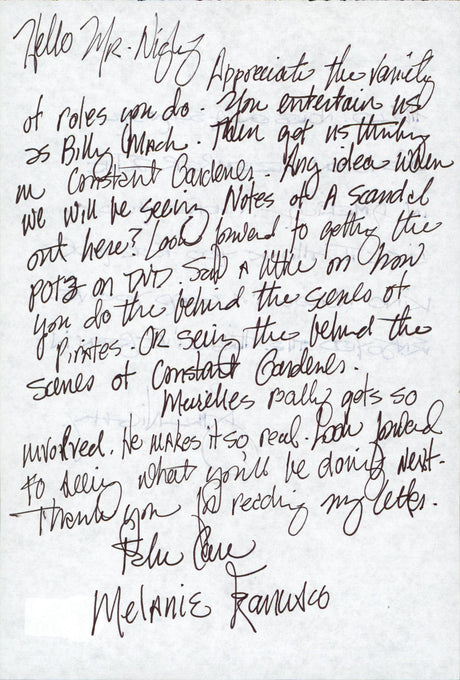 Hello Mr. Nighy
Appreciate the variety
of roles you do. You entertain us
as Billy Mack. Then get us thinking
in Constant Gardener. Any idea when
we will be seeing Notes of A Scandel
out here? Look forward to getting the
POTC on DVD. Saw A little on how
you do the behind the scenes of
Pirates. OR seing the behind the
scenes of Constant Gardener.
Meirelles Really gets so
involved. He makes it so real. Look forward
to seeing what you'll be doing Next.
Thank you for reading my letter.
Take Care
Melanie